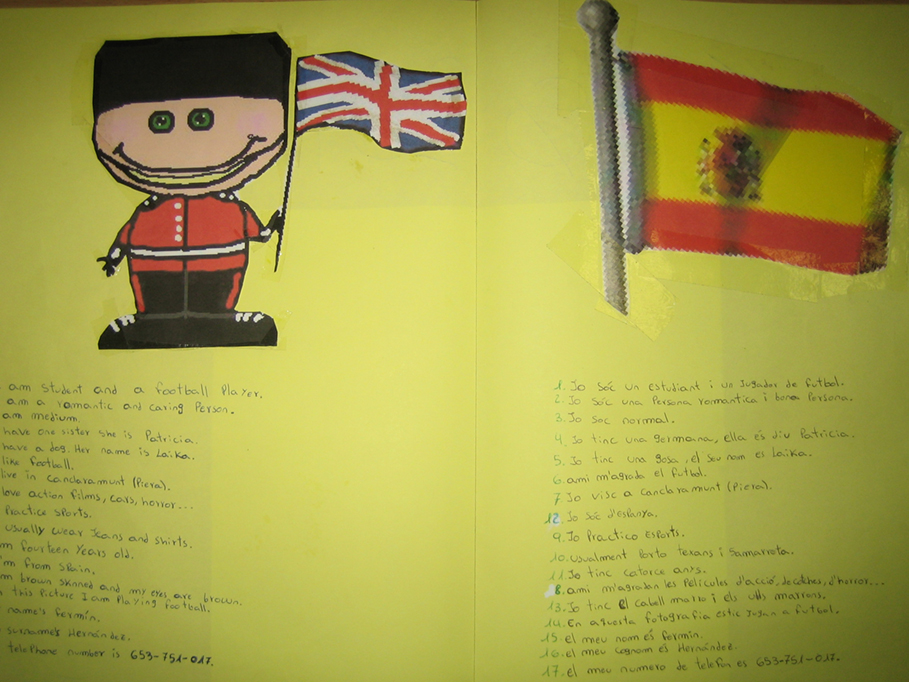 am student and a football Player.
am a romantic and caring Person.
am medium.
have one sister she is Patricia.
have a dog. Her name is Laika.
like football.
live in canclaramunt (Piera).
love action films, cars, horror...
Practice sports.
usually wear Jeans and shirts.
m fourteen Years old.
'm from Spain.
m brown skinned and my eyes are brown.
n this Picture I am Playing football.
name's fermín.
surname's Hernández.
telephone number is 653-751-017.
1. Jo sóc un estudiant i un Jugador de futbol.
2. Jo sóc una Persona romantica i bona Persona.
3. Jo soc normal.
4. Jo tinc una germana, ella és diu Patricia.
5. Jo tinc una gosa, el seu nom es Laika.
6. ami m'agrada el futbol.
7. Jo visc a canclaramunt (Piera).
12. Jo sóc d'espanya.
9. Jo Practico esports.
10. usualment Porto texans i samarrota.
11. Jo tinc catorce anys.
8. ami m'agradan les Pel·lícules d'acció, de cotches, d'horror...
13. Jo tinc el cabell marro i els ulls marrons.
14. En aquesta fotografia estic Jugan a futbol.
15. el meu nom és fermín.
16. el meu cognom és Hernández.
17. el meu numero de telefon es 653-751-017.